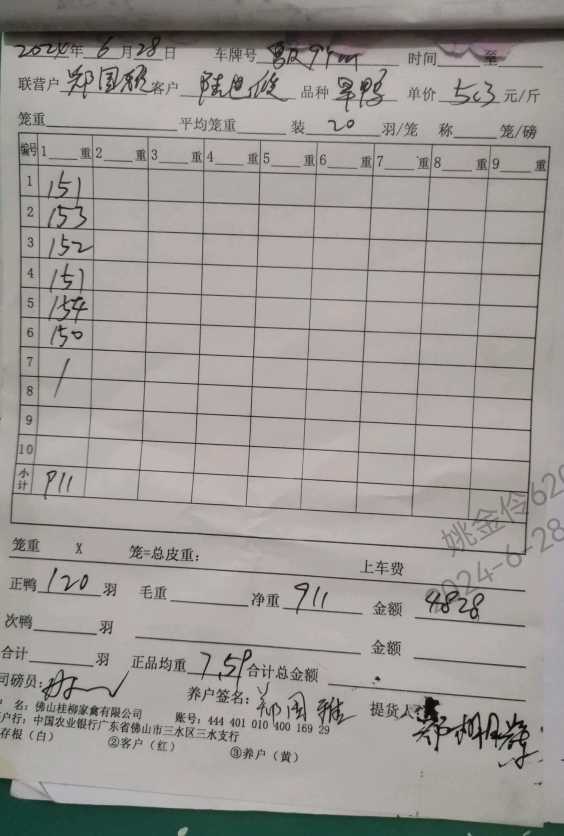 2024年6月28日 车牌号 时间 至
联营户 郑国 客户 品种 旱鸭 单价 5.3 元/斤
笼重 平均笼重 装 20 羽/笼 称 笼/磅
编号 1 重 2 重 3 重 4 重 5 重 6 重 7 重 8 重 9 重
1 151
2 153
3 152
4 151
5 154
6 150
7 /
8
9
10
小计 911
笼重 X 笼=总皮重: 上车费
正鸭 120 羽 毛重 净重 911 金额 4828
次鸭 羽 金额
合计 羽 正品均重 7.59 合计总金额
司磅员: 养户签名: 郑国雅 提货人
名: 佛山桂柳家禽有限公司 账号: 444 401 010 400 169 29
户行: 中国农业银行广东省佛山市三水区三水支行
存根（白） ②客户（红） ③养户（黄）
姚金伶620
2024-6-28